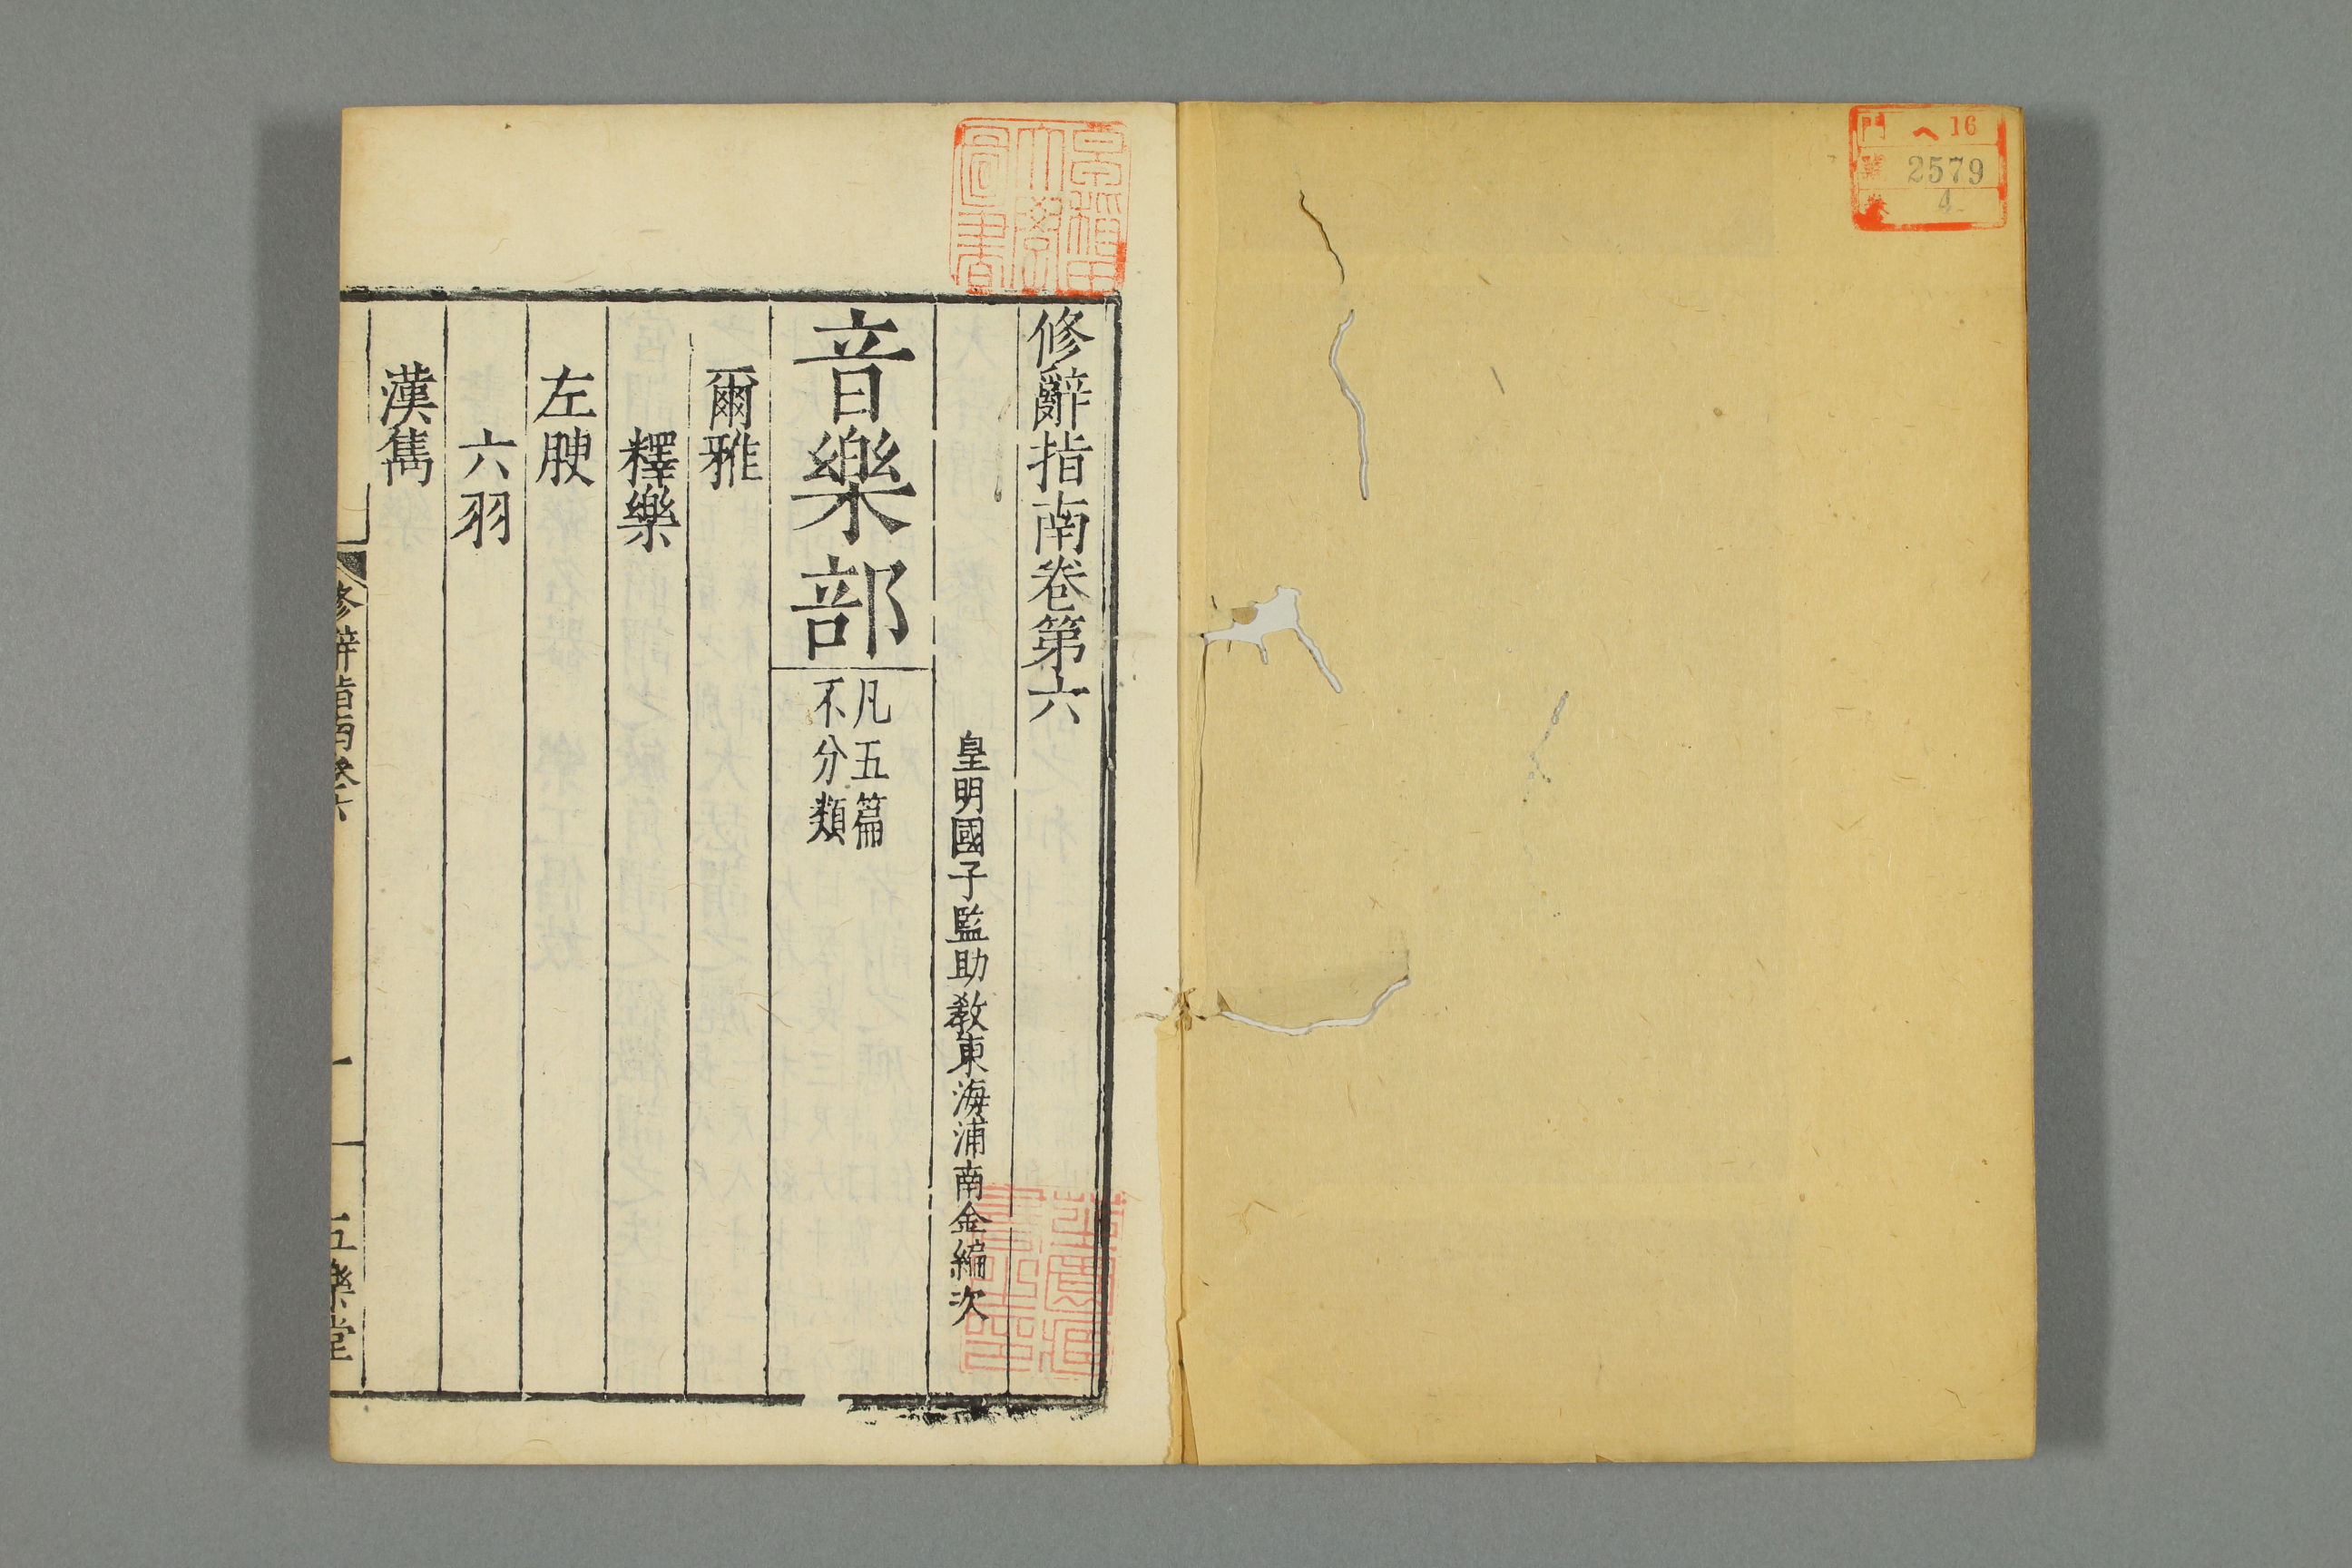 門 ヘ 16
號 2579
卷 4
早稲田
大學
圖書
修辭指南卷第六
皇明國子監助教東海浦南金編次
音樂部
凡五篇
不分類
爾雅
釋樂
左腴
六羽
漢雋
修辭指南卷六
一
五樂堂